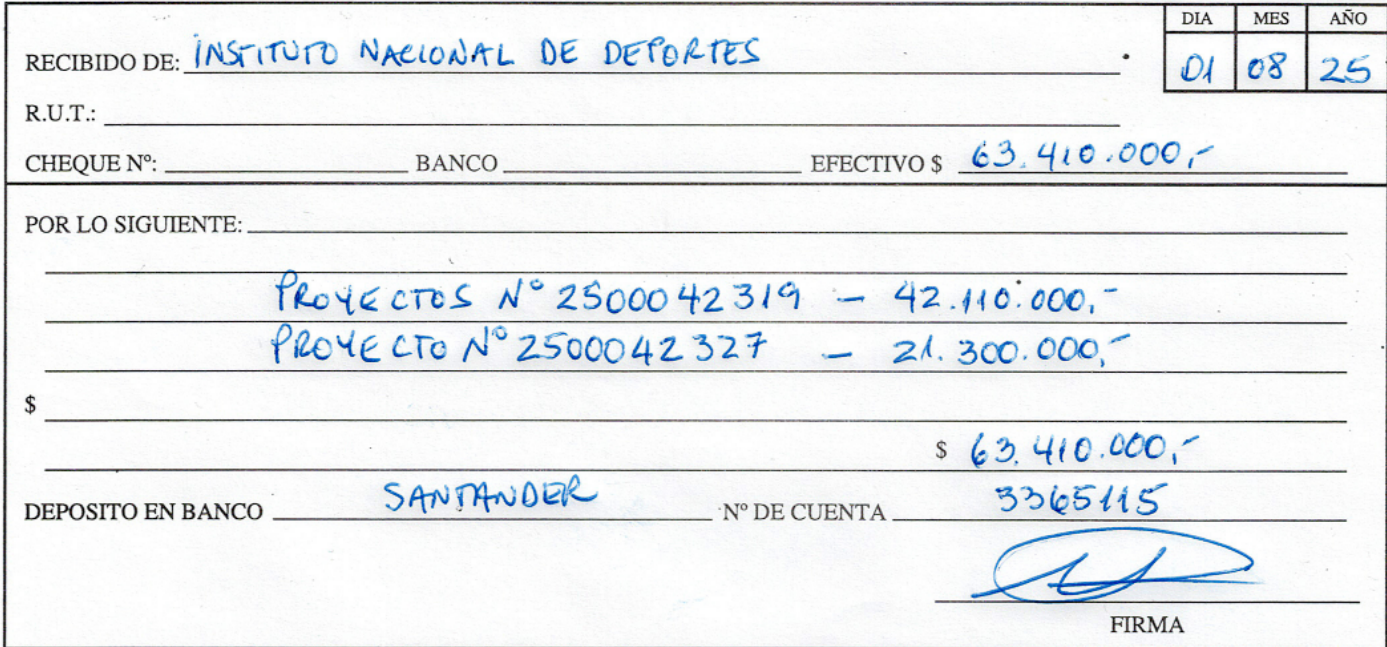 DIA MES AÑO
RECIBIDO DE: INSTITUTO NACIONAL DE DEPORTES 01 08 25
R.U.T.:
CHEQUE Nº: BANCO EFECTIVO $ 63.410.000,-
POR LO SIGUIENTE:
PROYECTOS Nº 2500042319 - 42.110.000,-
PROYECTO Nº 2500042327 - 21.300.000,-
$
$ 63.410.000,-
DEPOSITO EN BANCO SANTANDER Nº DE CUENTA 3365115
FIRMA